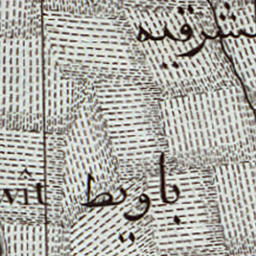 لشرقيه
باويط
wît